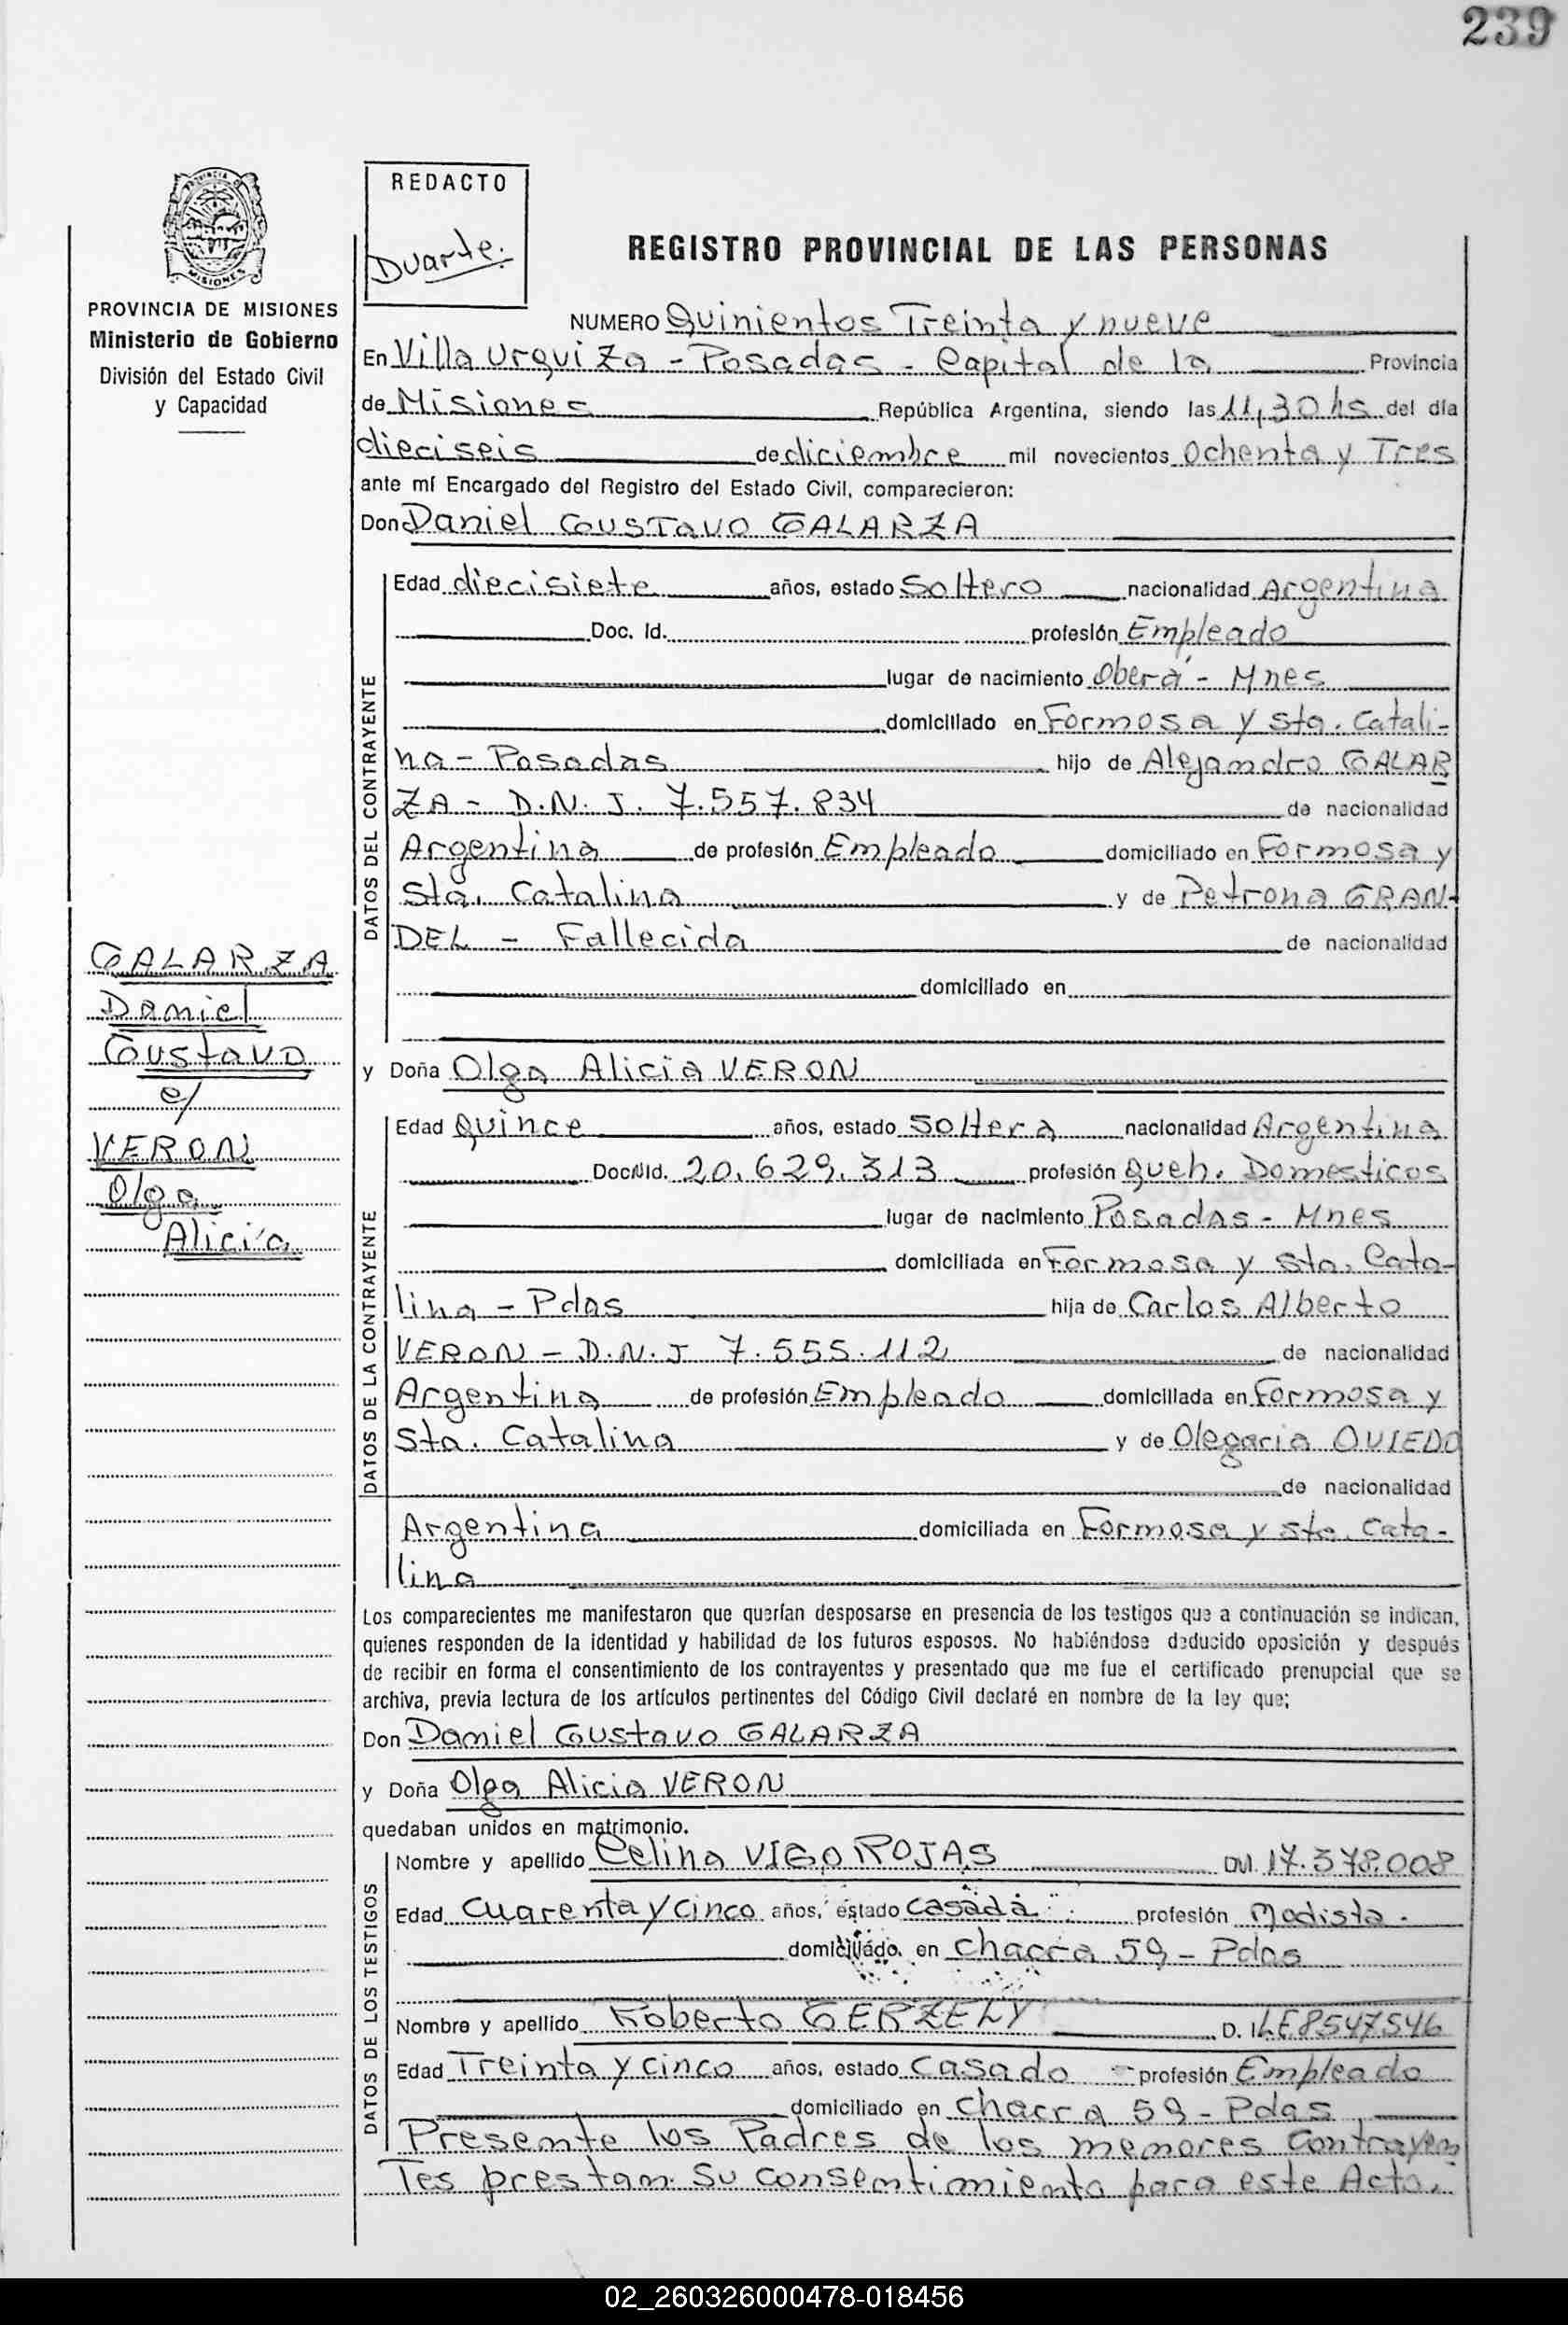 239
REDACTO
Duarte.
PROVINCIA DE MISIONES
Ministerio de Gobierno
División del Estado Civil
y Capacidad
MISIONES
REGISTRO PROVINCIAL DE LAS PERSONAS
NUMERO Quinientos Treinta y nueve
En Villa Urquiza - Posadas - Capital de la Provincia
de Misiones República Argentina, siendo las 11,30 hs del día
dieciseis de diciembre mil novecientos Ochenta y Tres
ante mí Encargado del Registro del Estado Civil, comparecieron:
Don Daniel GUSTAVO GALARZA
DATOS DEL CONTRAYENTE
Edad diecisiete años, estado Soltero nacionalidad Argentina
Doc. Id. profesión Empleado
lugar de nacimiento Oberá - Mnes
domiciliado en Formosa y Sta. Catali-
na - Posadas hijo de Alejandro GALAR
ZA - D.N.I. 7.557.834 de nacionalidad
Argentina de profesión Empleado domiciliado en Formosa y
Sta. Catalina y de Petrona GRAN-
DEL - Fallecida de nacionalidad
domiciliado en
GALARZA
Daniel
Gustavo
c/
VERON
Olga
Alicia
y Doña Olga Alicia VERON
DATOS DE LA CONTRAYENTE
Edad Quince años, estado Soltera nacionalidad Argentina
Doc. Id. 20.629.313 profesión Queh. Domesticos
lugar de nacimiento Posadas - Mnes
domiciliada en Formosa y Sta. Cata-
lina - Pdas hija de Carlos Alberto
VERON - D.N.I 7.555.112 de nacionalidad
Argentina de profesión Empleado domiciliada en Formosa y
Sta. Catalina y de Olegaria OVIEDO
de nacionalidad
Argentina domiciliada en Formosa y Sta. Cata-
lina
Los comparecientes me manifestaron que querían desposarse en presencia de los testigos que a continuación se indican,
quienes responden de la identidad y habilidad de los futuros esposos. No habiéndose deducido oposición y después
de recibir en forma el consentimiento de los contrayentes y presentado que me fue el certificado prenupcial que se
archiva, previa lectura de los artículos pertinentes del Código Civil declaré en nombre de la ley que;
Don Daniel Gustavo GALARZA
y Doña Olga Alicia VERON
quedaban unidos en matrimonio.
DATOS DE LOS TESTIGOS
Nombre y apellido Celina VIGO ROJAS 17.378.008
Edad Cuarenta y Cinco años, estado Casada profesión Modista.
domiciliado en Chacra 59 - Pdas
Nombre y apellido Roberto GERZELY D. I. LE 8547546
Edad Treinta y cinco años, estado Casado - profesión Empleado
domiciliado en Chacra 59 - Pdas
Presente los Padres de los menores Contrayen
Tes prestan su consentimiento para este Acto.
02_260326000478-018456